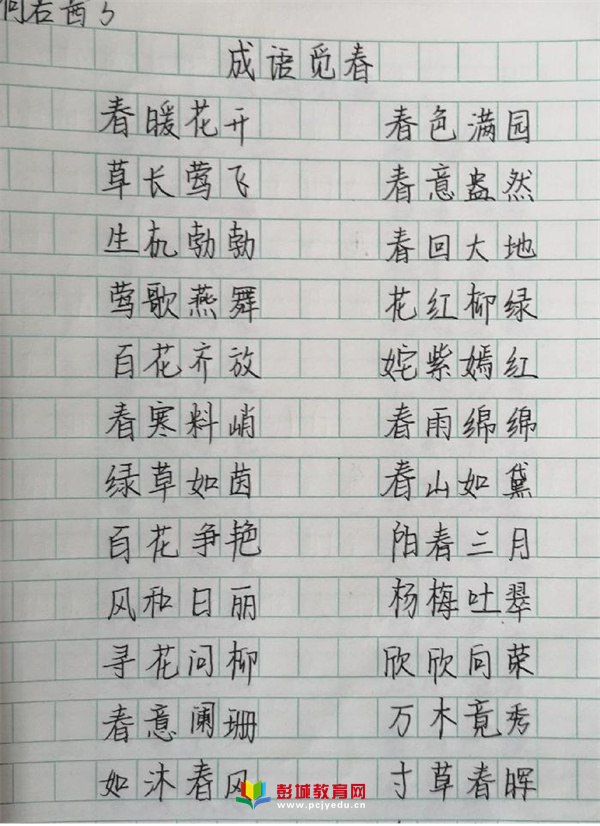 成语觅春
春暖花开 春色满园
草长莺飞 春意盎然
生机勃勃 春回大地
莺歌燕舞 花红柳绿
百花齐放 姹紫嫣红
春寒料峭 春雨绵绵
绿草如茵 春山如黛
百花争艳 阳春三月
风和日丽 杨梅吐翠
寻花问柳 欣欣向荣
春意阑珊 万木竞秀
如沐春风 寸草春晖
彭城教育网
www.pcjyedu.cn